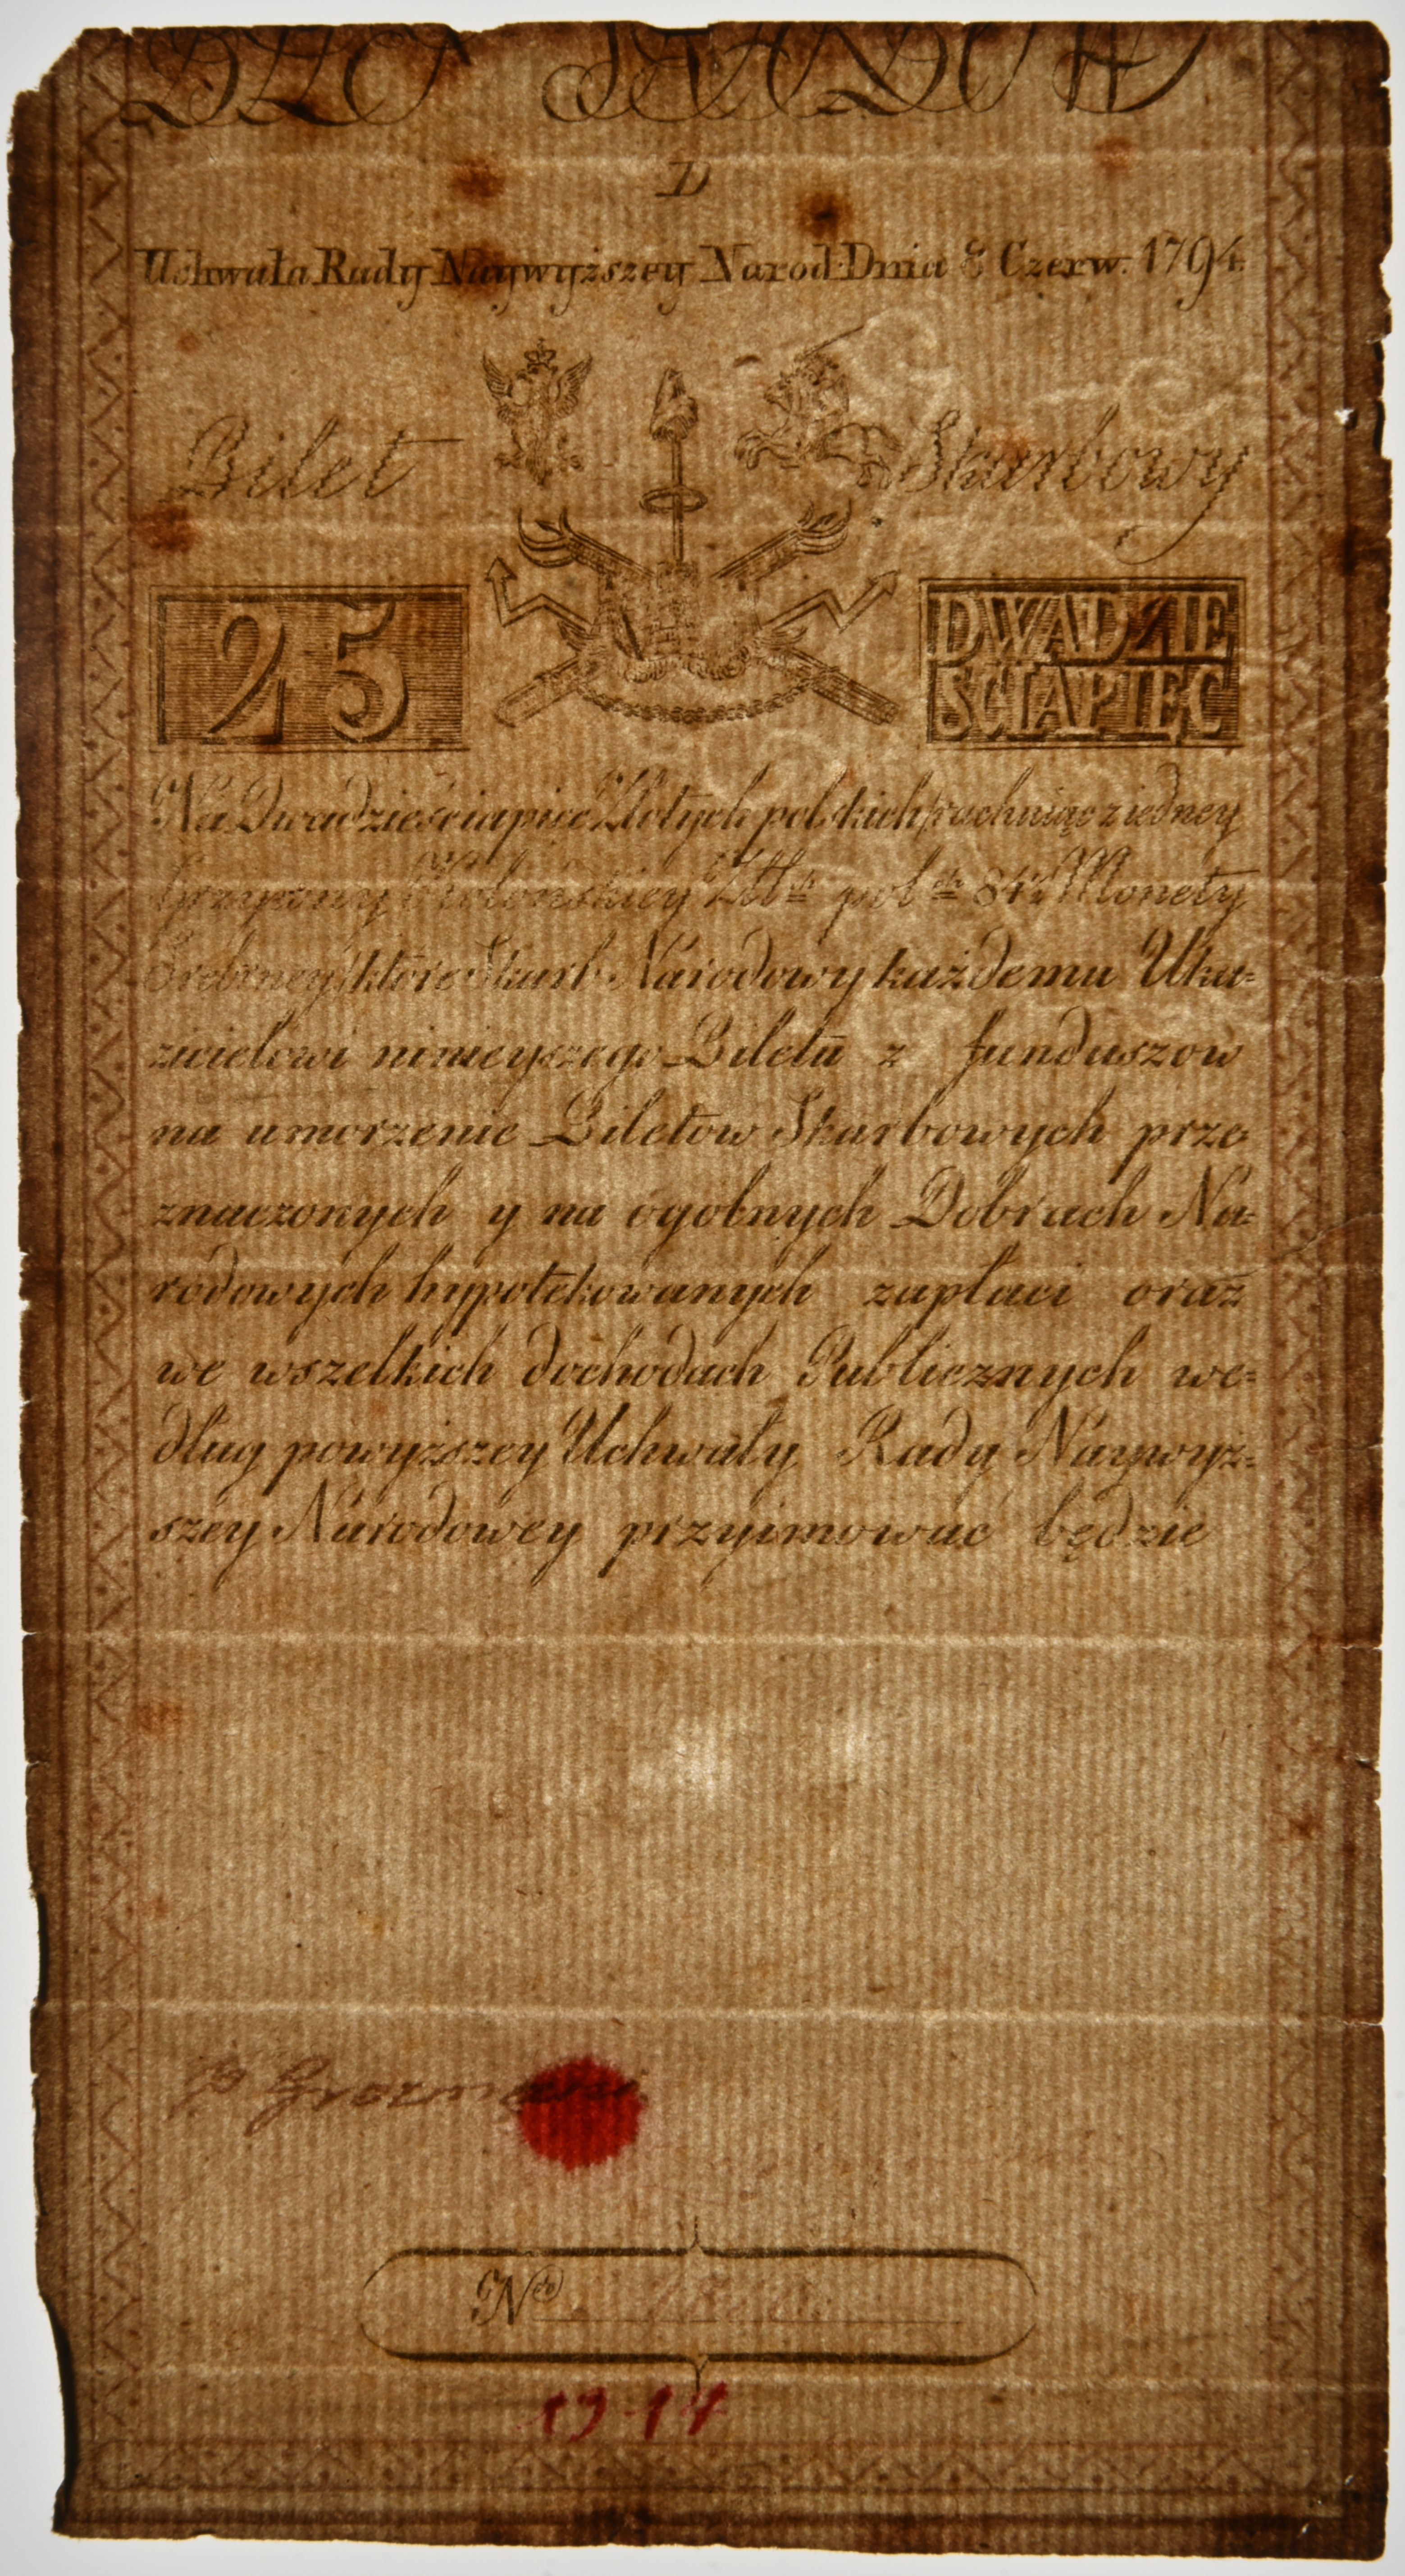 D
Uchwała Rady Naywyższey Narod: Dnia 8 Czerw. 1794.
Bilet Skarbowy
25
DWADZIE
SCIAPIĘC
Na Dwadzieściapięc Złotych polskich (rachuiąc z iedney
Grzywny Kolońskiey Złł: pol: 84½ Monety
Srebrney) które Skarb Narodowy każdemu Uka-
zicielowi ninieyszego Biletu z funduszow
na umorzenie Biletow Skarbowych prze-
znaczonych y na ogolnych Dobrach Na-
rodowych hypotekowanych zapłaci oraz
we wszelkich dochodach Publicznych we-
dług powyższey Uchwały Rady Naywyż-
szey Narodowey przyimować będzie
Nro